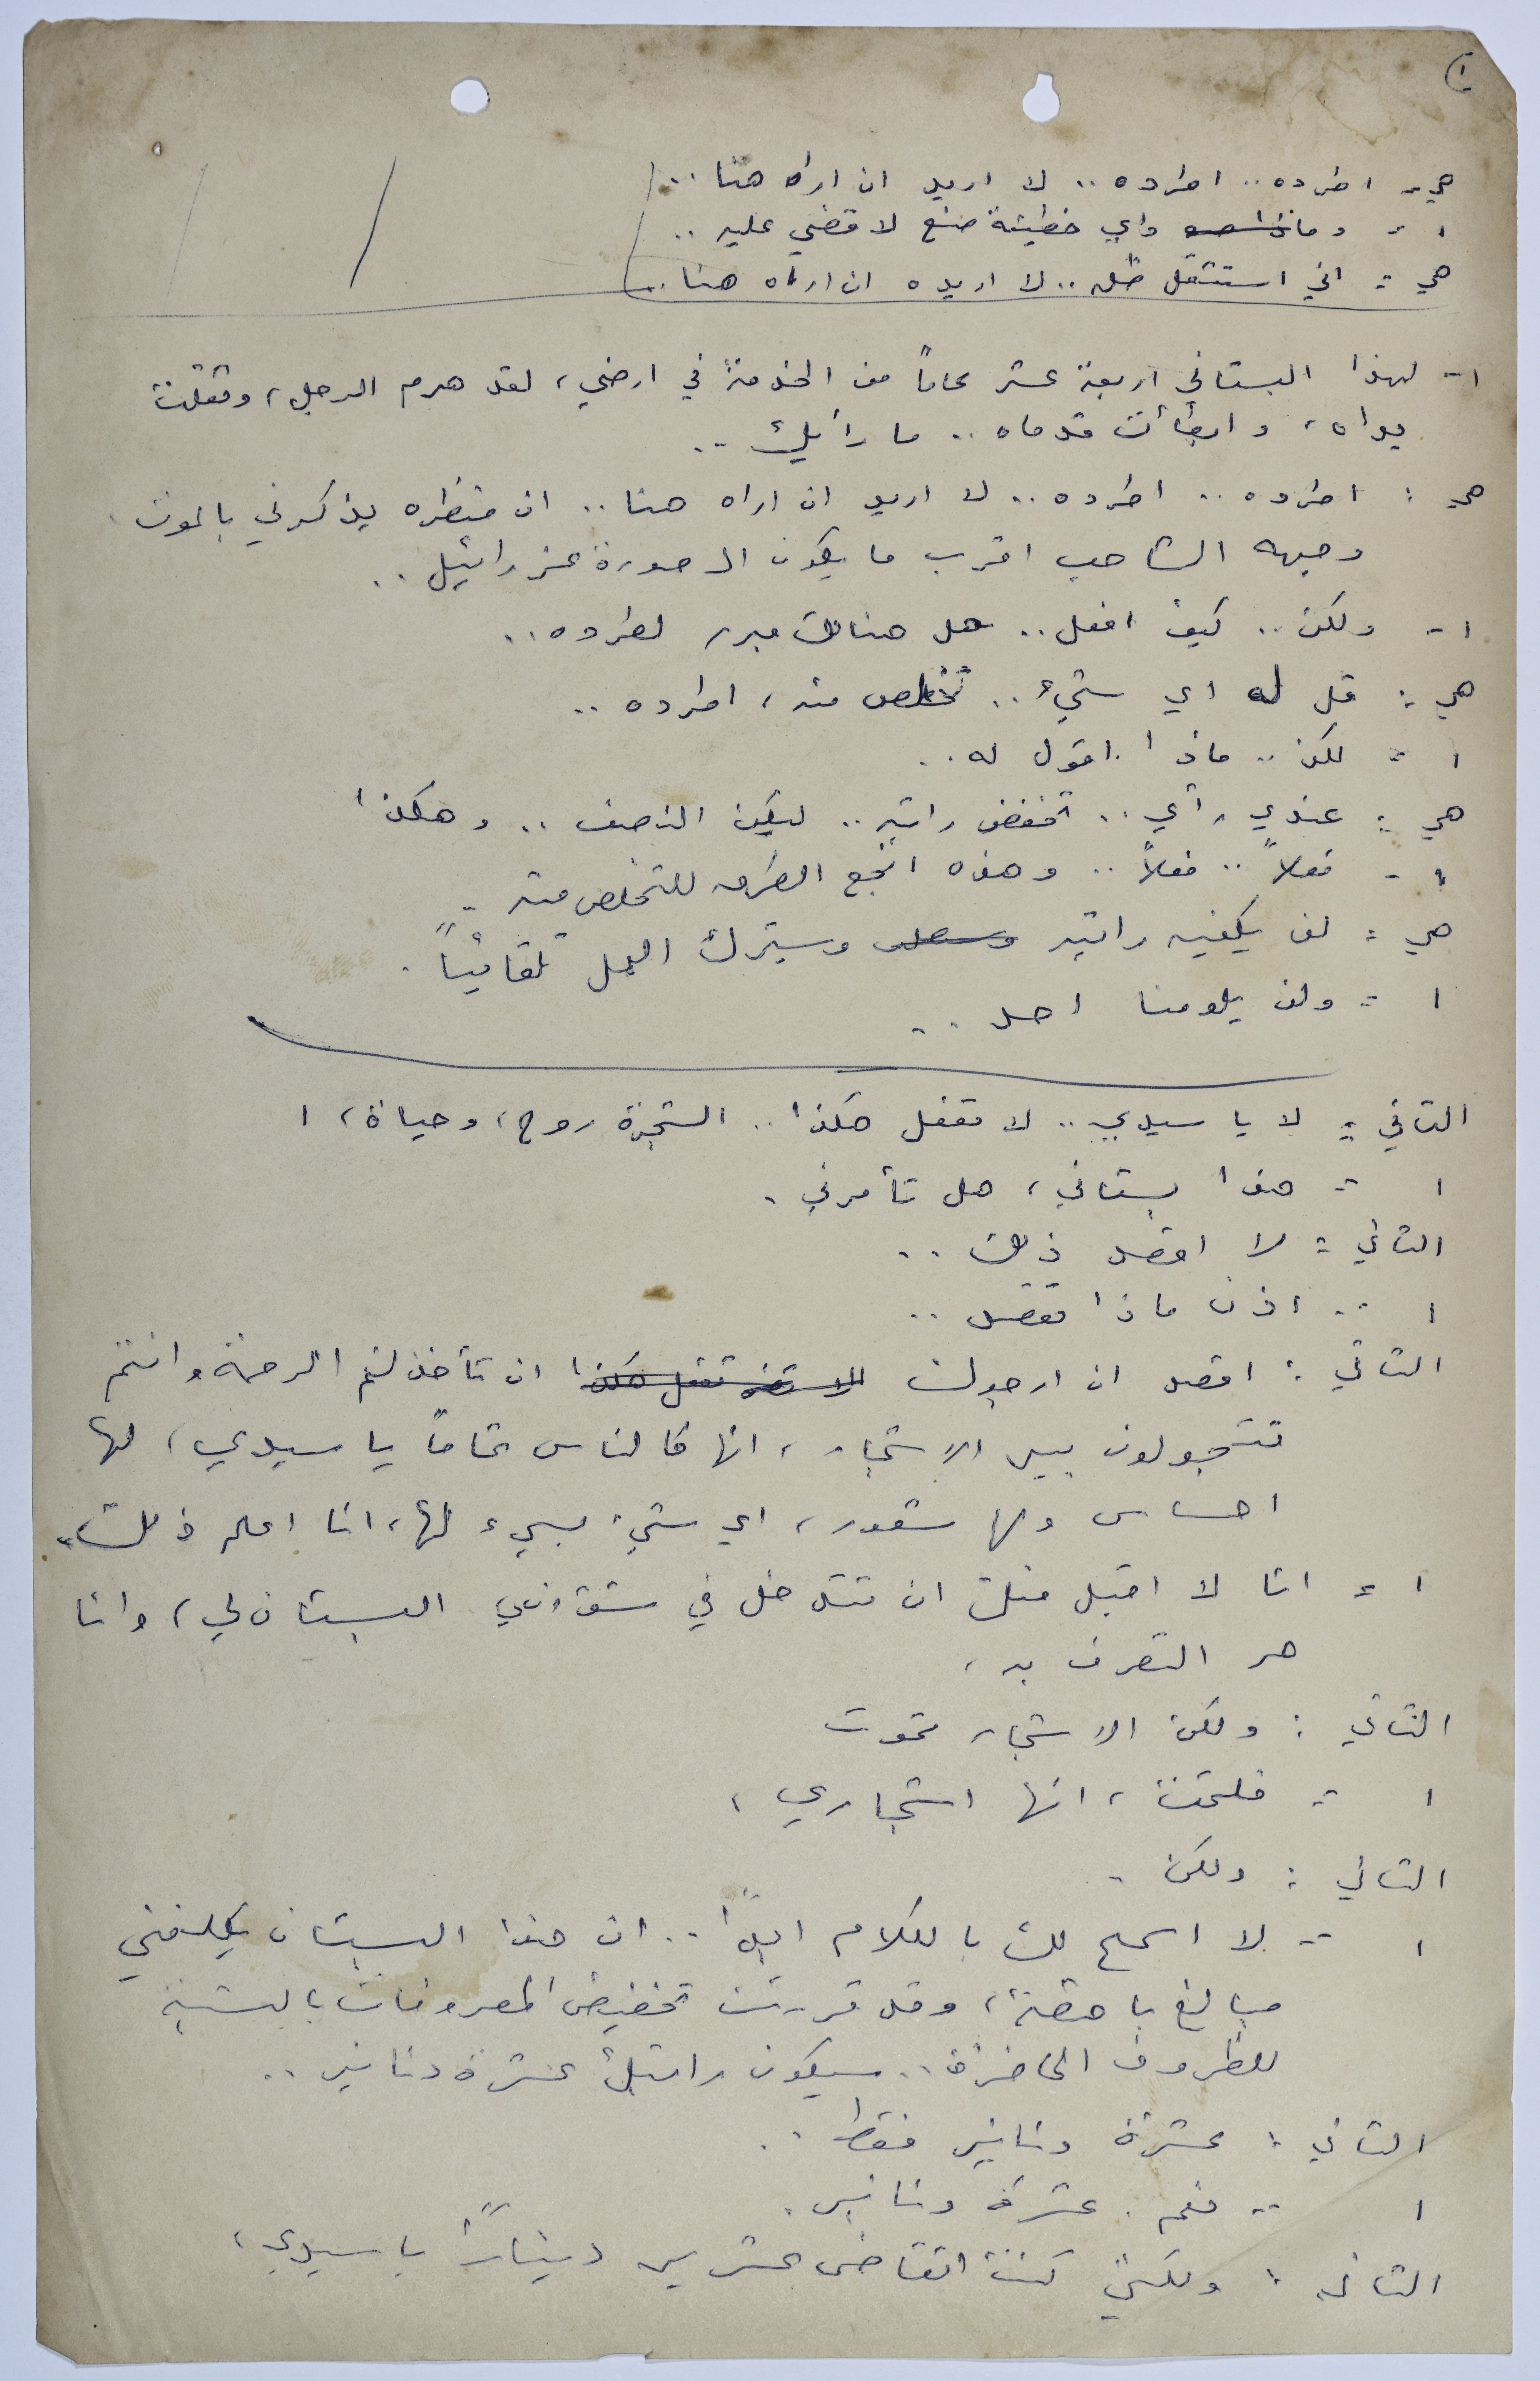 هي - اطرده .. اطرده .. لا اريد ان اراه هنا ..
١ - واي خطيئة صنع لاقضي عليه ..
هي : اني استثقل ظله .. لا اريده ان اراه هنا ..
١ - لهذا البستاني اربعة عشر عاماً من الخدمة في ارضي، لقد هرم الرجل، وثقلت
يداه، وابطأت قدماه .. ما رأيك ..
هي : اطرده .. اطرده .. لا اريد ان اراه هنا .. ان منظره يذكرني بالموت
وجهه الشاحب اقرب ما يكون الى صورة عزرائيل ..
١ - ولكن .. كيف افعل .. هل هنالك مبرر لطرده ..
هي : قل له اي شيء .. تخلص منه، اطرده ..
١ - لكن .. ماذا اقول له ..
هي : عندي رأي .. تخفض راتبه .. ليكون النصف .. وهكذا
١ - فعلاً .. فعلاً .. وهذه انجع الطرق للتخلص منه ..
هي : لن يكفيه راتبه وسيترك العمل تلقائياً .
١ - ولن يلومنا احد ..
الثاني : لا يا سيدي .. لا تفعل هكذا .. الشجرة روح، وحياة، ١
١ - هذا بستاني، هل تأمرني .
الثاني : لا اقصد ذلك ..
١ - اذن ماذا تقصد ..
الثاني : اقصد ان ارجوك ان تأخذكم الرحمة وانتم
تتجولون بين الاشجار، انها كالناس تماماً يا سيدي، لها
احساس ولها شعور، اي شيء يسيء لها، انا اعلم ذلك .
١ - انا لا اقبل منك ان تتدخل في شؤوني البستان لي، وانا
حر التصرف به،
الثاني : ولكن الاشجار تموت
١ - فلتمت، انها اشجاري،
الثاني : ولكن .
١ - لا اسمح لك بالكلام ابداً .. ان هذا البستان يكلفني
مبالغ باهظة، وقد قررت تخفيض المصروفات بالنسبة
للظروف الحاضرة .. سيكون راتبك عشرة دنانير ..
الثاني : عشرة دنانير فقط ..
١ - نعم . عشرة دنانير .
الثاني : ولكني كنت اتقاضى عشرين ديناراً يا سيدي،